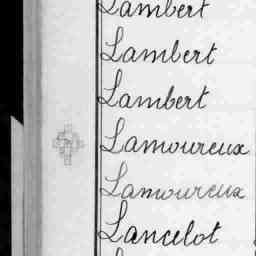 Lambert
Lambert
Lambert
Lamoureux
Lamoureux
Lancelot